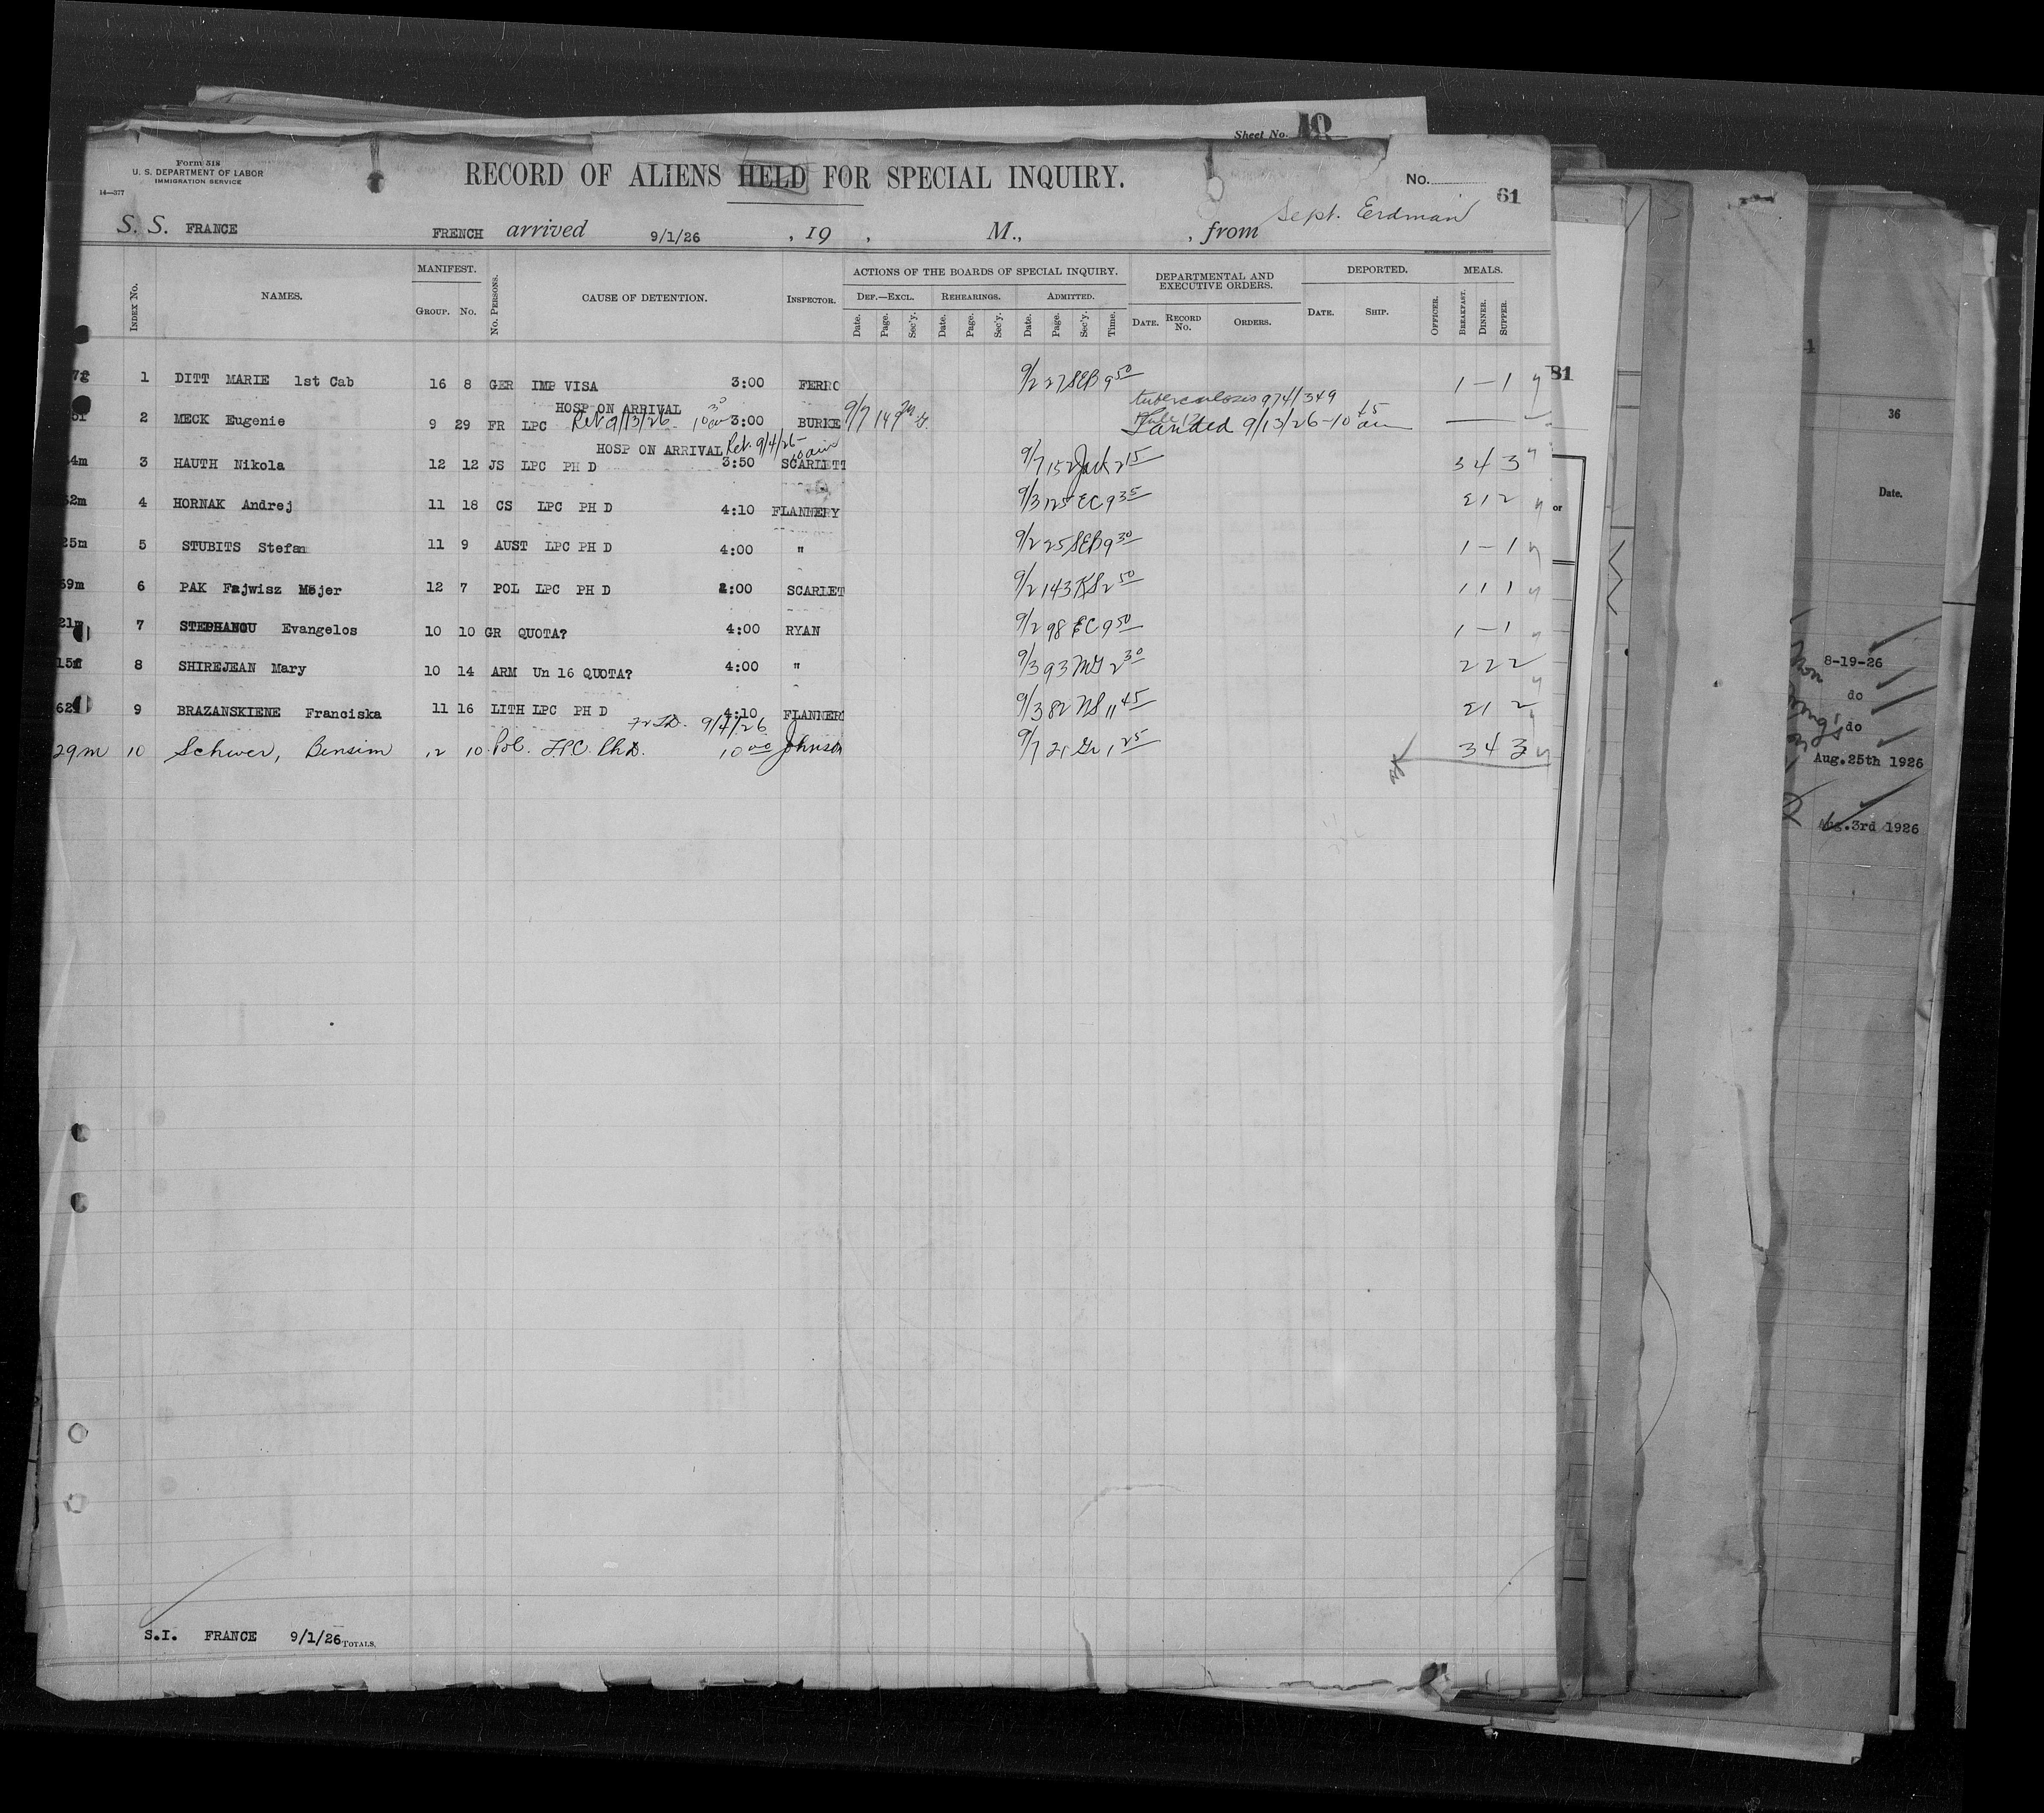 Sheet No. 10
Form 518
U. S. DEPARTMENT OF LABOR
IMMIGRATION SERVICE
14—377
RECORD OF ALIENS HELD FOR SPECIAL INQUIRY.
No.
61
S. S. FRANCE FRENCH arrived 9/1/26 , 19 , M., , from Sept. Erdman
INDEX No. NAMES. MANIFEST. GROUP. No. No. PERSONS. CAUSE OF DETENTION. INSPECTOR. ACTIONS OF THE BOARDS OF SPECIAL INQUIRY. DEF.—EXCL. REHEARINGS. ADMITTED. DEPARTMENTAL AND EXECUTIVE ORDERS. DEPORTED. MEALS.
Date. Page. Sec'y. Date. Page. Sec'y. Date. Page. Sec'y. Time. DATE. RECORD No. ORDERS. DATE. SHIP. OFFICER. BREAKFAST. DINNER. SUPPER.
1 DITT MARIE 1st Cab 16 8 GER IMP VISA 3:00 FERRO 9/2 27 SEB 9 50 1 — 1
HOSP ON ARRIVAL tuberculosis 974/349
2 MECK Eugenie 9 29 FR LPC Rel 9/13/26 10 30 am 3:00 BURKE 9/7 149 Landed 9/13/26-10 45 am
HOSP ON ARRIVAL Rel. 9/4/26- 10 am
4m 3 HAUTH Nikola 12 12 JS LPC PH D 3:50 SCARLETT 9/7 152 Jack 2 15 3 4 3
2m 4 HORNAK Andrej 11 18 CS LPC PH D 4:10 FLANNERY 9/3 125 EC 9 35 2 1 2
25m 5 STUBITS Stefan 11 9 AUST LPC PH D 4:00 " 9/2 25 SEB 9 30 1 — 1
39m 6 PAK Fajwisz Mejer 12 7 POL LPC PH D 2:00 SCARLET 9/2 143 KS 2 50 1 1 1
21m 7 STEPHANOU Evangelos 10 10 GR QUOTA? 4:00 RYAN 9/2 98 EC 9 50 1 — 1
15f 8 SHIREJEAN Mary 10 14 ARM Un 16 QUOTA? 4:00 " 9/3 93 MG 2 30 2 2 2
62 9 BRAZANSKIENE Franciska 11 16 LITH LPC PH D 4:10 FLANNERY 9/3 82 NS 11 45 2 1 2
9/4/26
29m 10 Schwer, Bensim 12 10 Pol. LPC. PhD. 10 00 Johnson 9/7 21 Gr 1 25 3 4 3
S.I. FRANCE 9/1/26 TOTALS.
81
or
36
Date.
8-19-26
do
do
Aug.25th 1926
Aug.3rd 1926